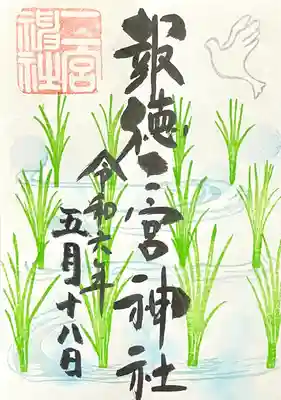 報徳二宮神社
令和六年
五月十八日
二宮
神社